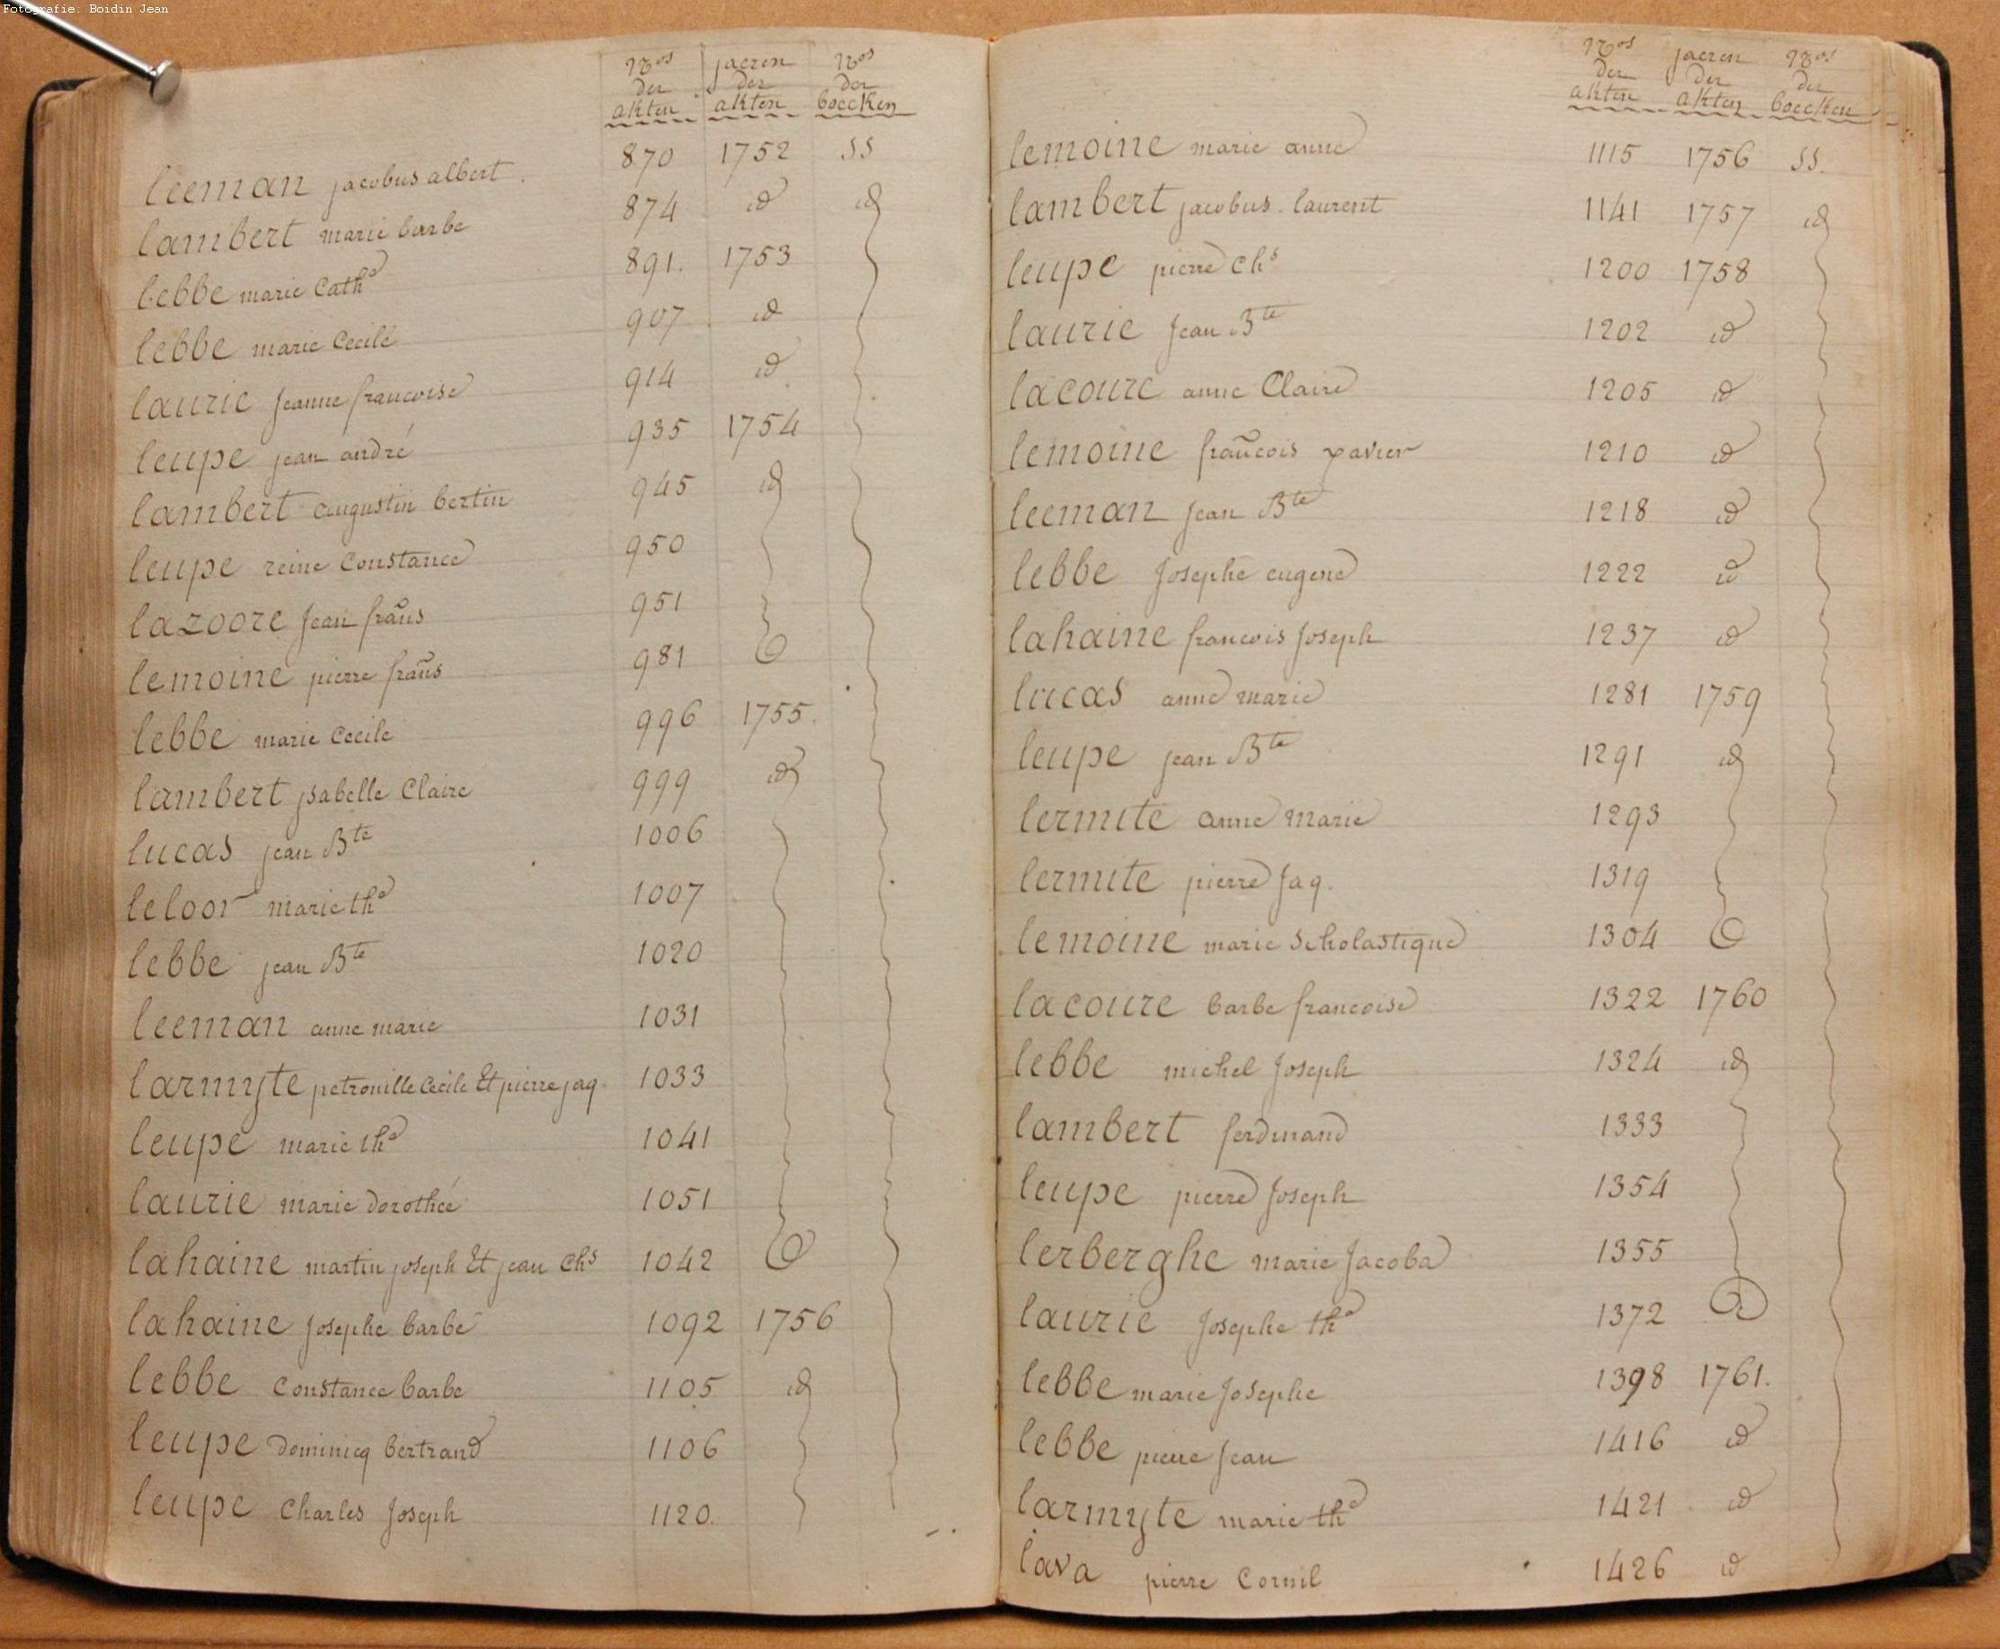 Fotografie: Boidin Jean
Nros der akten jaeren der akten Nros der boecken
leeman jacobus albert. 870 1752 SS
lambert marie barbe 874 id id
lebbe marie Cathe 891. 1753
lebbe marie Cecile 907 id
laurie jeanne francoise 914 id
leupe jean andré 935 1754
lambert augustin bertin 945 id
leupe reine Constance 950
lazoore jean frañs 951
lemoine pierre frañs 981
lebbe marie Cecile 996 1755.
lambert ysabelle Claire 999 id
lucas jean Bte 1006
leloor marie the 1007
lebbe jean Bte 1020
leeman anne marie 1031
larmyte petronille Cecile Et pierre jaq. 1033
leupe marie the 1041
laurie marie dorothée 1051
lahaine martin joseph Et jean Chs 1042
lahaine Josephe barbe 1092 1756
lebbe Constance barbe 1105 id
leupe dominicq bertrand 1106
leupe Charles Joseph 1120.
Nros der akten jaeren der akten Nros der boecken
lemoine marie anne 1115 1756 SS.
lambert jacobus laurent 1141 1757 id
leupe pierre Chs 1200 1758
laurie Jean Bte 1202 id
lacoure anne Claire 1205 id
lemoine frañcois xavier 1210 id
leeman jean Bte 1218 id
lebbe Josephe eugene 1222 id
lahaine francois Joseph 1237 id
lucas anne marie 1281 1759
leupe jean Bte 1291 id
lermite anne marie 1293
lermite pierre Jaq. 1319
lemoine marie scholastique 1304
lacoure barbe francoise 1322 1760
lebbe michel Joseph 1324 id
lambert ferdinand 1333
leupe pierre Joseph 1354
lerberghe marie Jacoba 1355
laurie Josephe the 1372
lebbe marie Josephe 1398 1761.
lebbe pierre Jean 1416 id
larmyte marie the 1421 id
lava pierre Cornil 1426 id